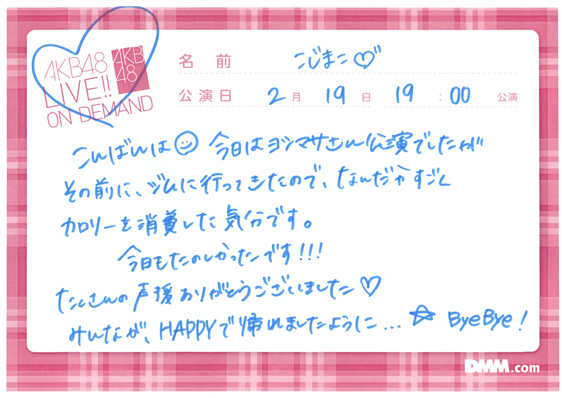 AKB48
LIVE!!
ON DEMAND
AKB
48
名前 こじまこ♡
公演日 2月 19日 19:00 公演
こんばんは☺ 今日はヨシマサさん公演でしたが
その前に、ジムに行ってきたので、なんだかすごく
カロリーを消費した気分です。
今日もたのしかったです!!!
たくさんの声援ありがとうございました♡
みんなが、HAPPYで帰れましたように...☆ ByeBye!
DMM.com